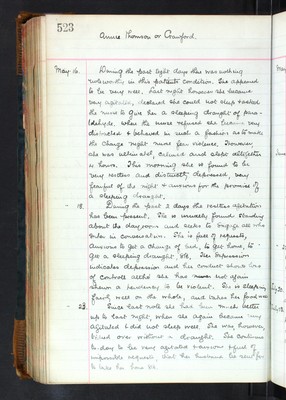 523
Annie Thomson or Crawford.
May. 16. During the past eight days there was nothing
noteworthy in this patient's condition. She appeared
to be very well. Last night however she became
very agitated, declared she could not sleep & asked
the nurse to give her a sleeping draught of paral-
dehyde. When the nurse refused she became very
distressed & behaved in such a fashion as to make
the Charge night nurse fear violence. However
she was ultimately calmed and slept altogether
hours. This morning she is found to be
very restless and distinctly depressed, very
fearful of the night & anxious for the promise of
a sleeping draught.
- 18. During the past 2 days the restless agitation
has been present. She is usually found standing
about the dayroom and seeks to engage all who
enter in conversation. She is full of requests,
anxious to get a change of bed, to get home, to
get a sleeping draught etc. Her expression
indicates depression and her conduct shows loss
of control altho' she has never but upon
shown a tendency to be violent. She is sleeping
fairly well on the whole, and takes her food well.
- 23. Since last note she has been much better
up to last night, when she again became very
agitated & did not sleep well. She was however
tided over without a draught. She continues
to-day to be very agitated & anxious & full of
impossible requests, that her husband be sent for
to take her home etc.